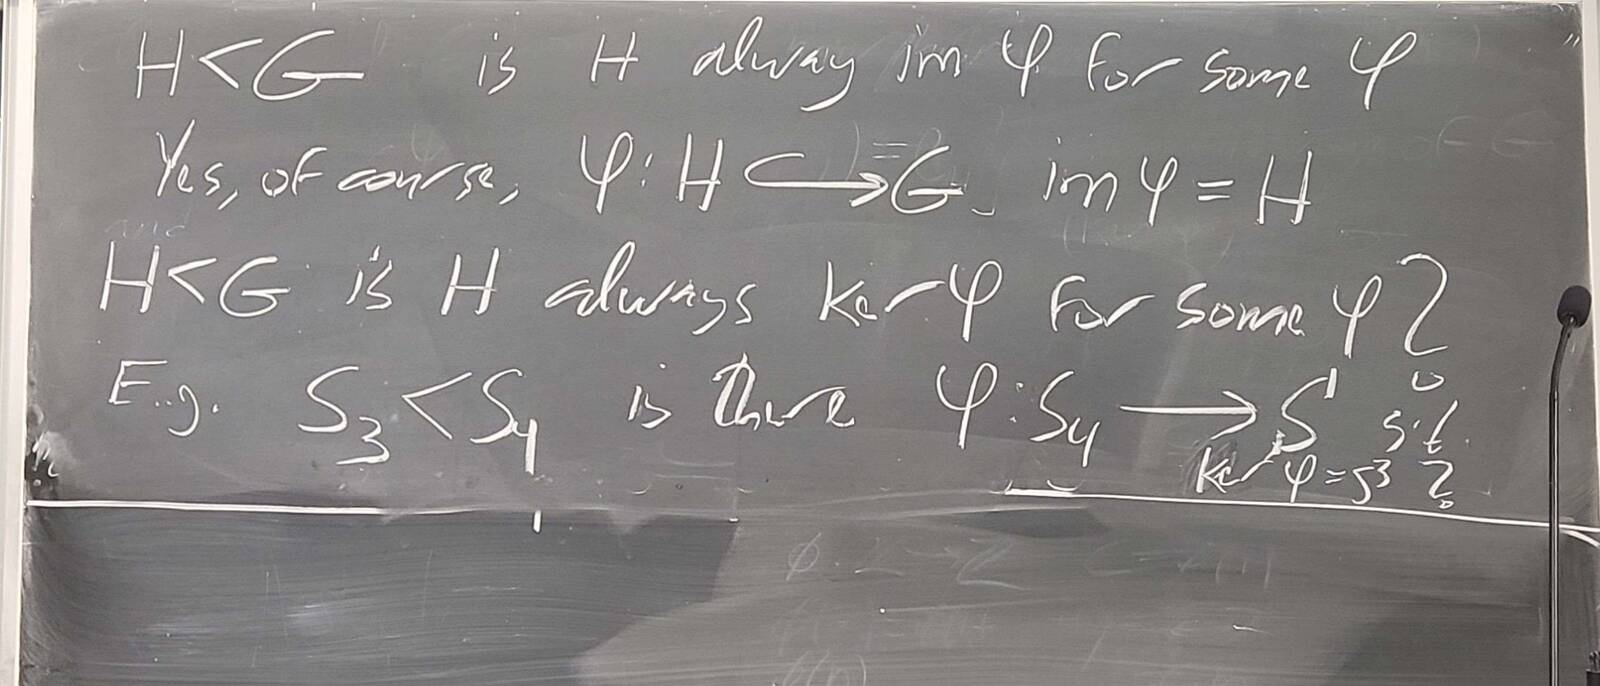 H<G is H alway im φ for some φ
Yes, of course, φ: H ↪ G, im φ = H
H<G is H always ker φ for some φ?
E.g. S₃<S₄ is there φ: S₄ ⟶ S' s.t.
ker φ = S³ ?